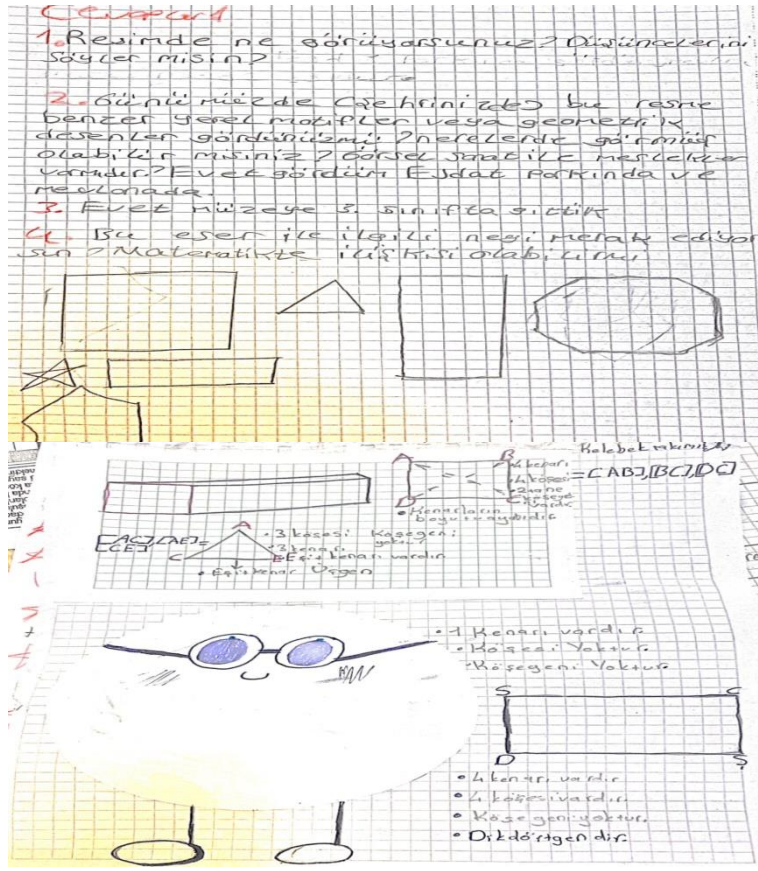 Cevapları
1. Resimde ne görüyorsunuz? Düşüncelerini
söyler misin?
2. Günümüzde (şehrinizde) bu resme
benzer yerel motifler veya geometrik
desenler gördünüzmü? nerelerde görmüş
olabilir misiniz? Görsel sanat ile meslekler
varmıdır? Evet gördüm Ecdat Parkında ve
3. Evet müzeye 3. sınıfta gittik
4. Bu eser ile ilgili neyi merak ediyor
sun? Matematikte ilişkisi olabilirmi
Kelebek
A B
=[AB],[BC],[DC]
4 kenarı
4 köşesi
2 tane
köşegeni
vardır
D C
• Kenarların
boyutu aynıdır
[AC] [AE]=
[CE]
A
C E
• 3 köşesi Köşegeni
yoktur
• 3 kenarı
• Eşit kenarı vardır
• Eşit kenar Üçgen
• 1 Kenarı vardır.
• Köşesi Yoktur.
• Köşegeni Yoktur.
S C
D Ş
• 4 kenarı vardır
• 4 köşesi vardır.
• Köşegeni yoktur.
• Dikdörtgendir.